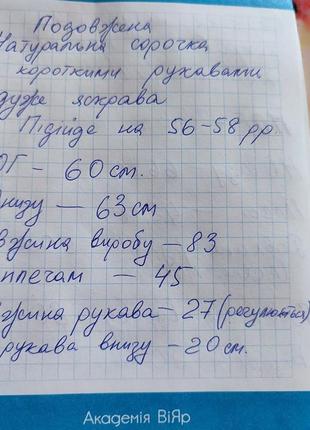 Подовжена
натуральна сорочка
короткими рукавами
дуже яскрава
Підійде на 56-58 рр.
ОГ - 60 см.
низу - 63 см
вжина виробу - 83
плечам - 45
жина рукава - 27 (регулюється)
рукава внизу - 20 см.
Академія ВіЯр